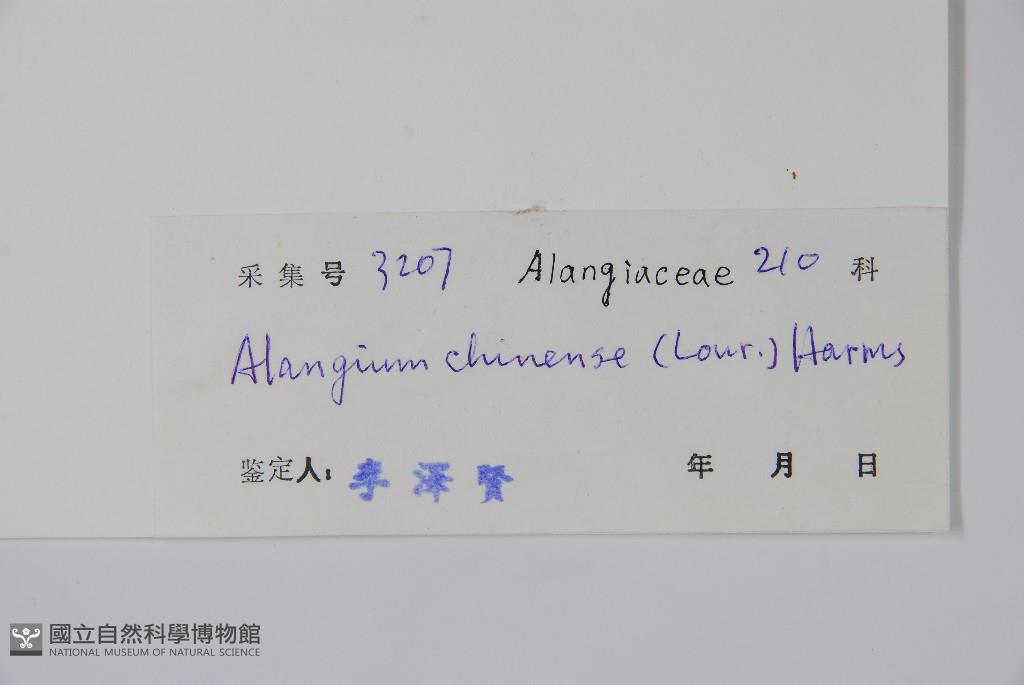 采集号 3207 Alangiaceae 210 科
Alangium chinense (Lour.) Harms
鉴定人: 李泽贤 年 月 日
國立自然科學博物館
NATIONAL MUSEUM OF NATURAL SCIENCE